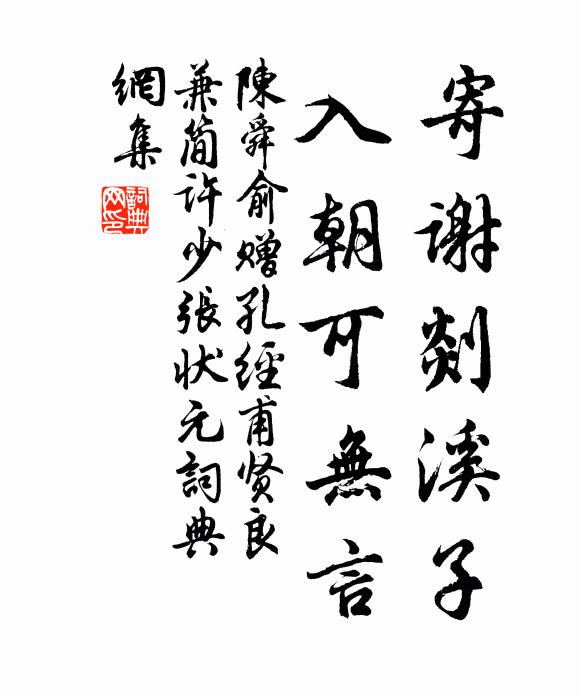 寄谢剡溪子
入朝可無言
陳舜俞贈孔經甫贤良
兼簡许少張状元詞典
網集
詞典网印